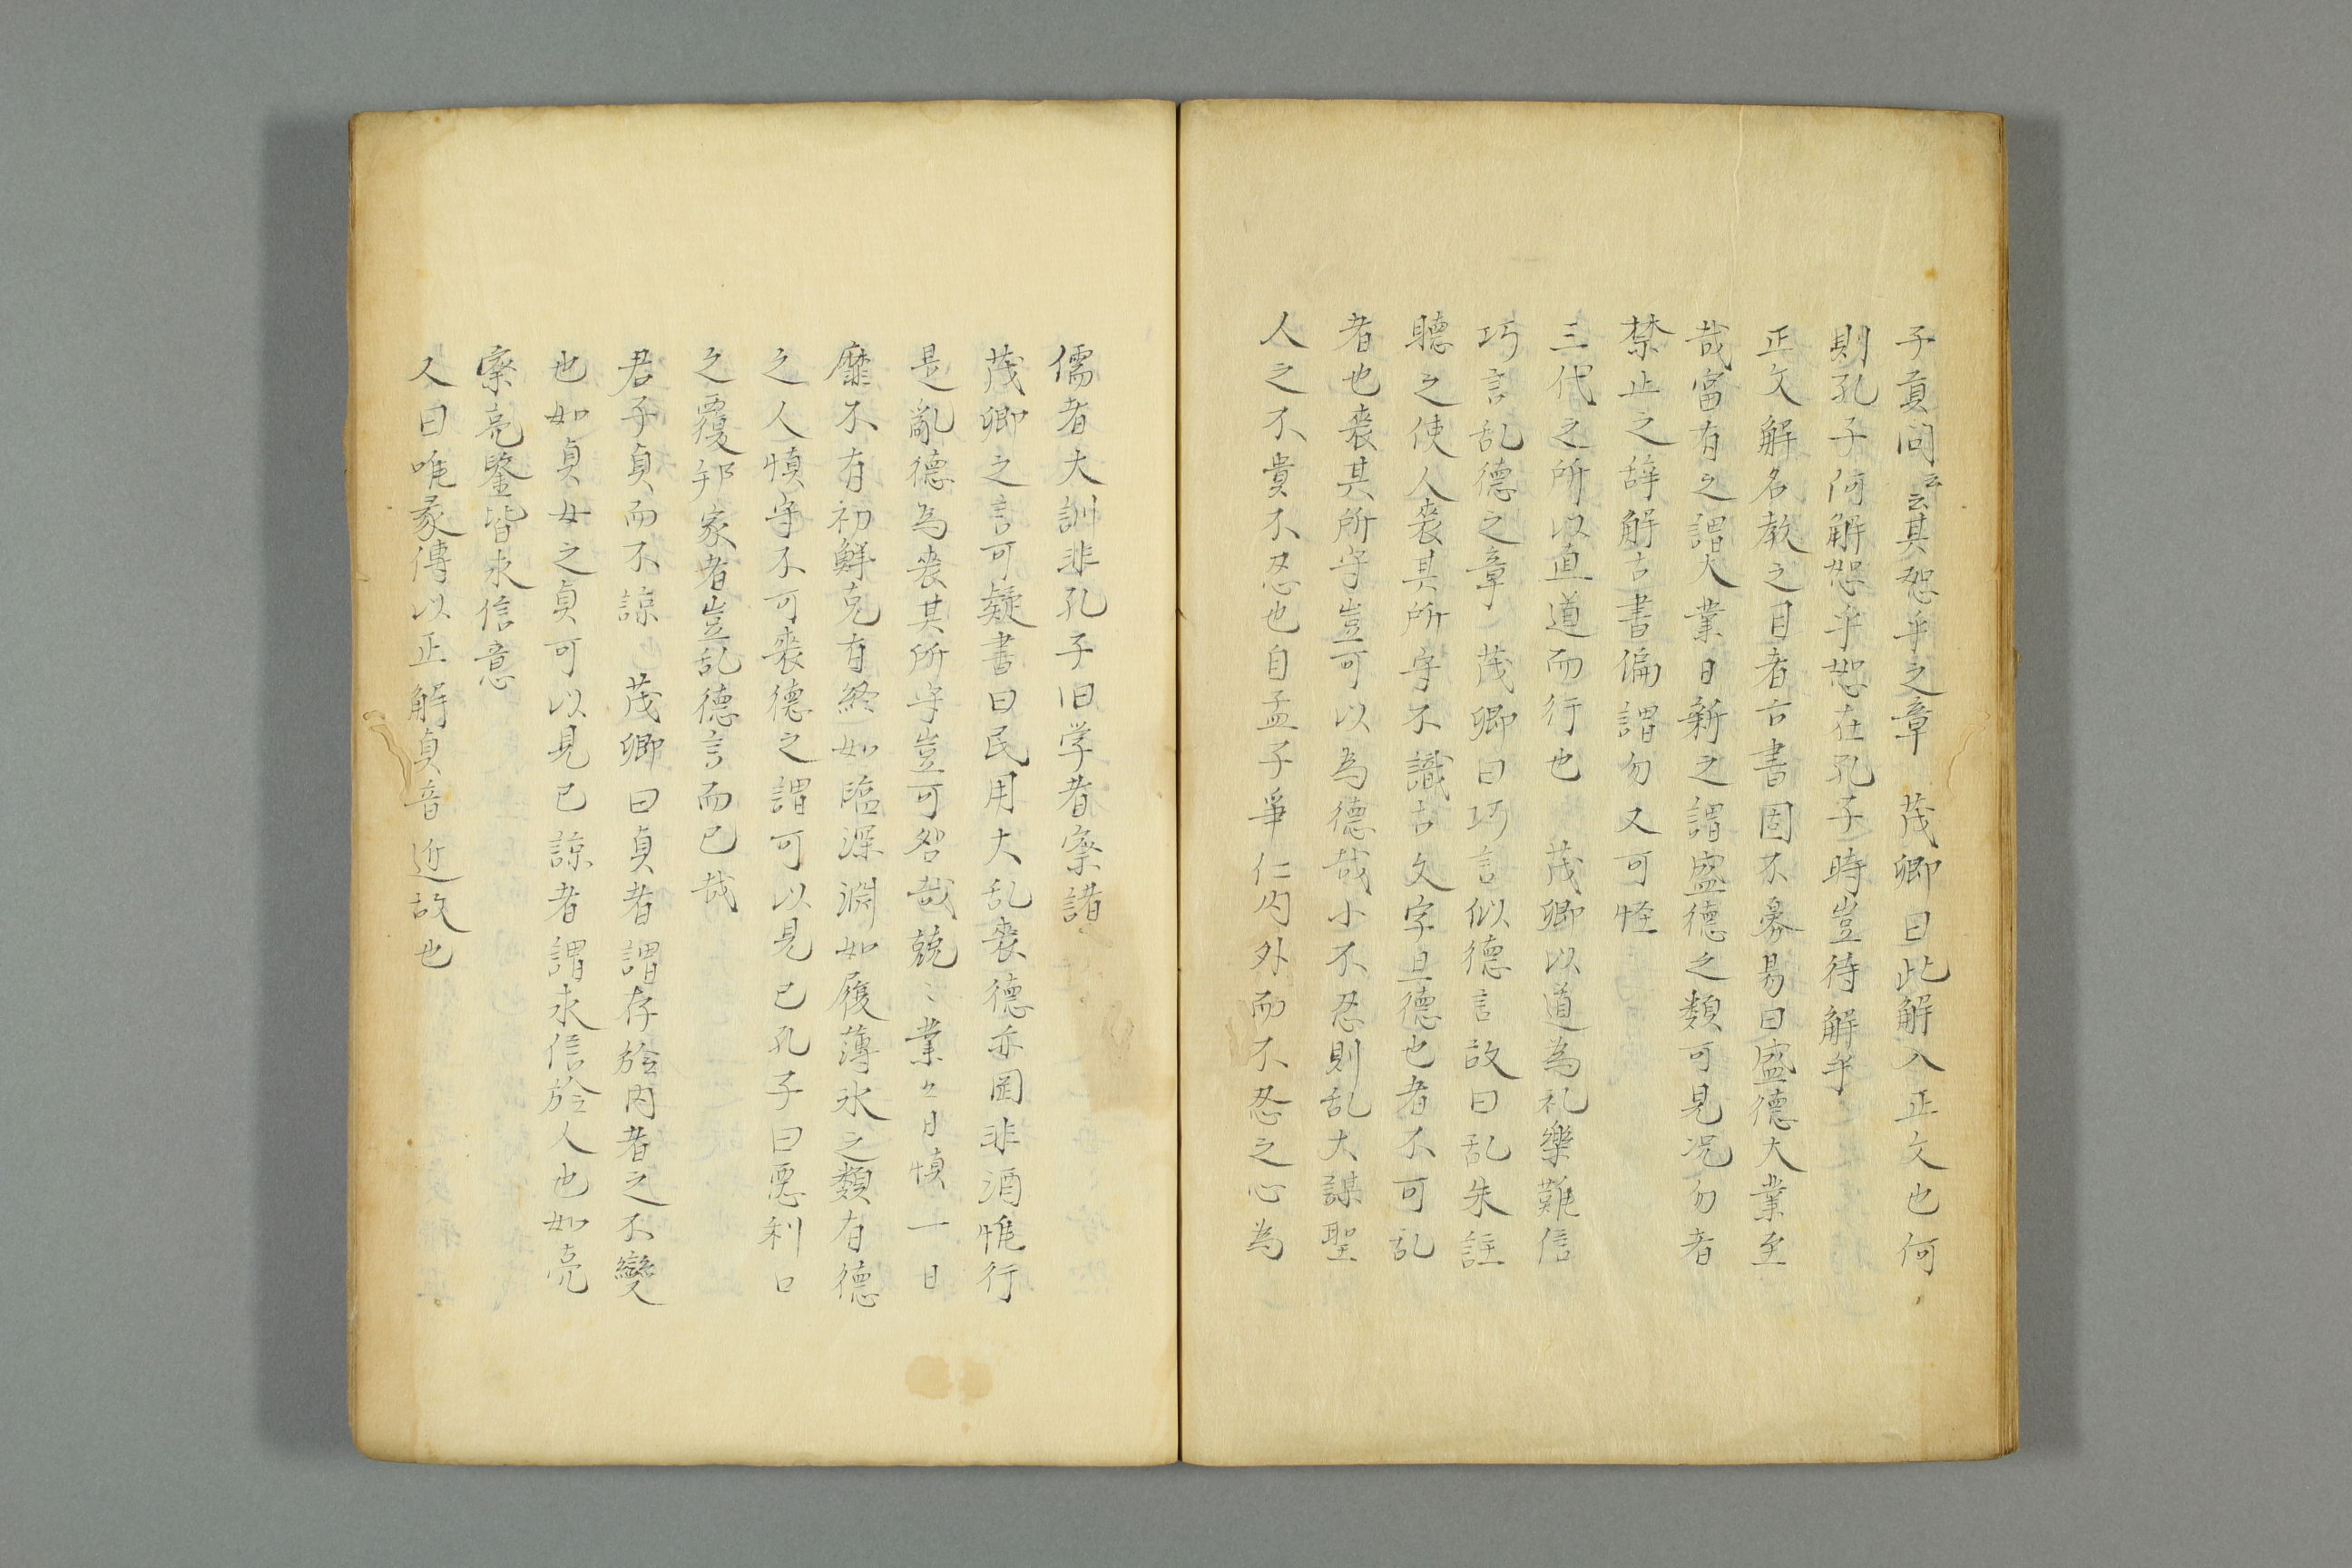 子貢問云云其恕乎之章　茂卿曰此解入正文也何
則孔子何解恕乎恕在孔子時豈待解乎
正文解名教之目者古書固不尠易曰盛德大業至
哉富有之謂大業日新之謂盛德之類可見况勿者
禁止之辞解古書偏謂勿又可怪
三代之所以直道而行也　茂卿以道為礼樂難信
巧言乱德之章　茂卿曰巧言似德言故曰乱朱註
聽之使人喪其所守不識古文字且德也者不可乱
者也喪其所守豈可以為德哉小不忍則乱大謀聖
人之不貴不忍也自孟子爭仁内外而不忍之心為
儒者大訓非孔子旧学者案諸
茂卿之言可疑書曰民用大乱喪德亦罔非酒惟行
是亂德為喪其所守豈可咎哉兢〻業〻日慎一日
靡不有初鮮克有終如臨深淵如履薄氷之類有德
之人慎守不可喪德之謂可以見已孔子曰惡利口
之覆邦家者豈乱德言而已哉
君子貞而不諒也　茂卿曰貞者謂存於内者之不變
也如貞女之貞可以見已諒者謂求信於人也如亮
案亮鑒皆求信意
又曰唯彖傳以正解貞音近故也